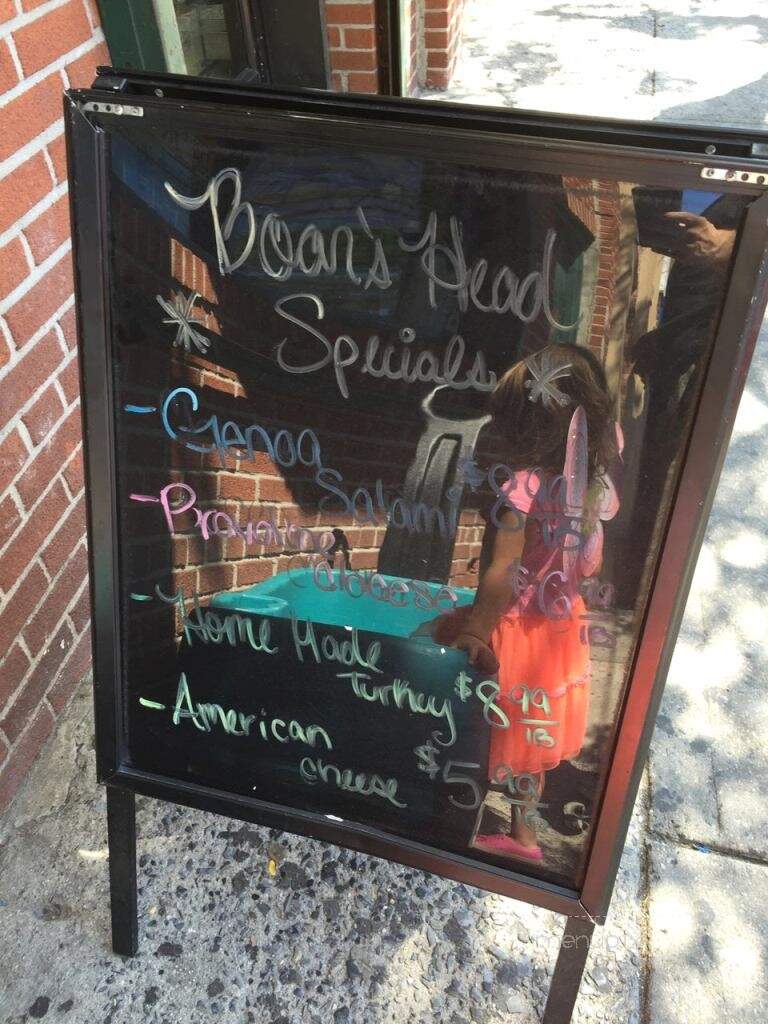 Boar's Head
Specials
- Genoa
Salami $8 99/lB
- Provolone
Cheese $6 99/lB
- Home Made
Turkey $8 99/lB
- American
cheese $5 99/lB